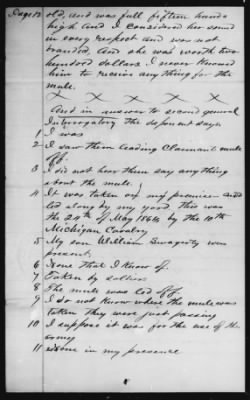 Page 13
old, and was full fifteen hands
high and I considered her sound
in every respect and was not
branded, and she was worth two
hundred dollars I never knowed
him to receive any thing for the
mule.
X X X X X
And in answer to second general
Interrogatory the deponent says
1 I was
2 I saw them leading Claimant mule
off.
3 I did not hear them say anything
about the mule.
4 It was taken on my premises and
led along by my yard this was
the 24th of May 1864 by the 10th
Michigan Cavalry
5 My son William Swagerty was
present
6 None that I know of.
7 Taken by soldiers
8 The mule was led off.
9 I do not know where the mule was
taken they were just passing
10 I suppose it was for the use of the
army
11 None in my presence